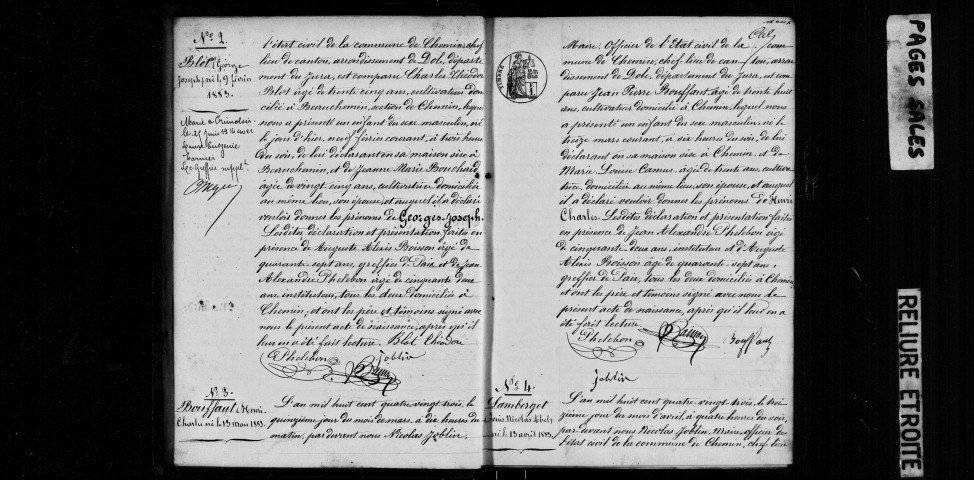 Nº 2.
Blot Georges
Joseph, né le 9 février
1883.
Marié à
le 27 juin 1914 avec
Eugénie
Le Greffier
l'état civil de la commune de Chemin, chef
lieu de canton, arrondissement de Dole, départe
ment du Jura, est comparu Charles Théodore
Blot âgé de trente cinq ans, cultivateur dom
icilié à Beauchemin, section de Chemin, lequel
nous a présenté un enfant du sexe masculin, né
le jour d'hier, neuf février courant, à trois heures
du soir, de lui déclarant en sa maison sise à
Beauchemin, et de Jeanne Marie Bouchard
âgée de vingt cinq ans, cultivatrice domiciliée
au même lieu, son épouse, et auquel il a déclaré
vouloir donner les prénoms de Georges-Joseph.
Lesdites déclaration et présentation faites en
présence de Auguste Alexis Boisson âgé de
quarante sept ans, greffier de Paix et de Jean
Alexandre Phelebon âgé de cinquante deux
ans, instituteur, tous les deux domiciliés à
Chemin, et ont les père et témoins signé avec
nous le présent acte de naissance, après qu'il
leur en a été fait lecture. Blot Théodore
Phelebon joblin
Nº 3.
Bouffaut Henri
Charles né le 13 mars 1883.
L'an mil huit cent quatre vingt trois, le
quinzième jour du mois de mars, à dix heures du
matin, par devant nous Nicolas Joblin,
TIMBRE
Maire, Officier de l'Etat civil de la com
mune de Chemin, chef lieu de canton, arron
dissement de Dole, département du Jura, est com
paru Jean Pierre Bouffaut, âgé de trente huit
ans, cultivateur domicilié à Chemin, lequel nous
a présenté un enfant du sexe masculin, né le
treize mars courant, à six heures du soir, de lui
déclarant en sa maison sise à Chemin, et de
Marie Louise Camus, âgée de trente ans, cultiva
trice, domiciliée au même lieu, son épouse, et auquel
il a déclaré vouloir donner les prénoms de Henri
Charles. Lesdites déclaration et présentation faites
en présence de Jean Alexandre Phelebon âgé
de cinquante deux ans, instituteur et d'Auguste
Alexis Boisson âgé de quarante sept ans,
greffier de Paix, tous les deux domiciliés à Chemin,
et ont les père et témoins signé avec nous le
présent acte de naissance, après qu'il leur en a
été fait lecture.
Phelebon Bouffaut
joblin
Nº 4.
Lamberget
né le 13 avril 1883.
L'an mil huit cent quatre vingt trois, le trei
zième jour du mois d'avril, à quatre heures du soir,
par devant nous Nicolas Joblin, Maire, officier de
l'état civil de la commune de Chemin, chef lieu
PAGES SALES
RELIURE ETROITE